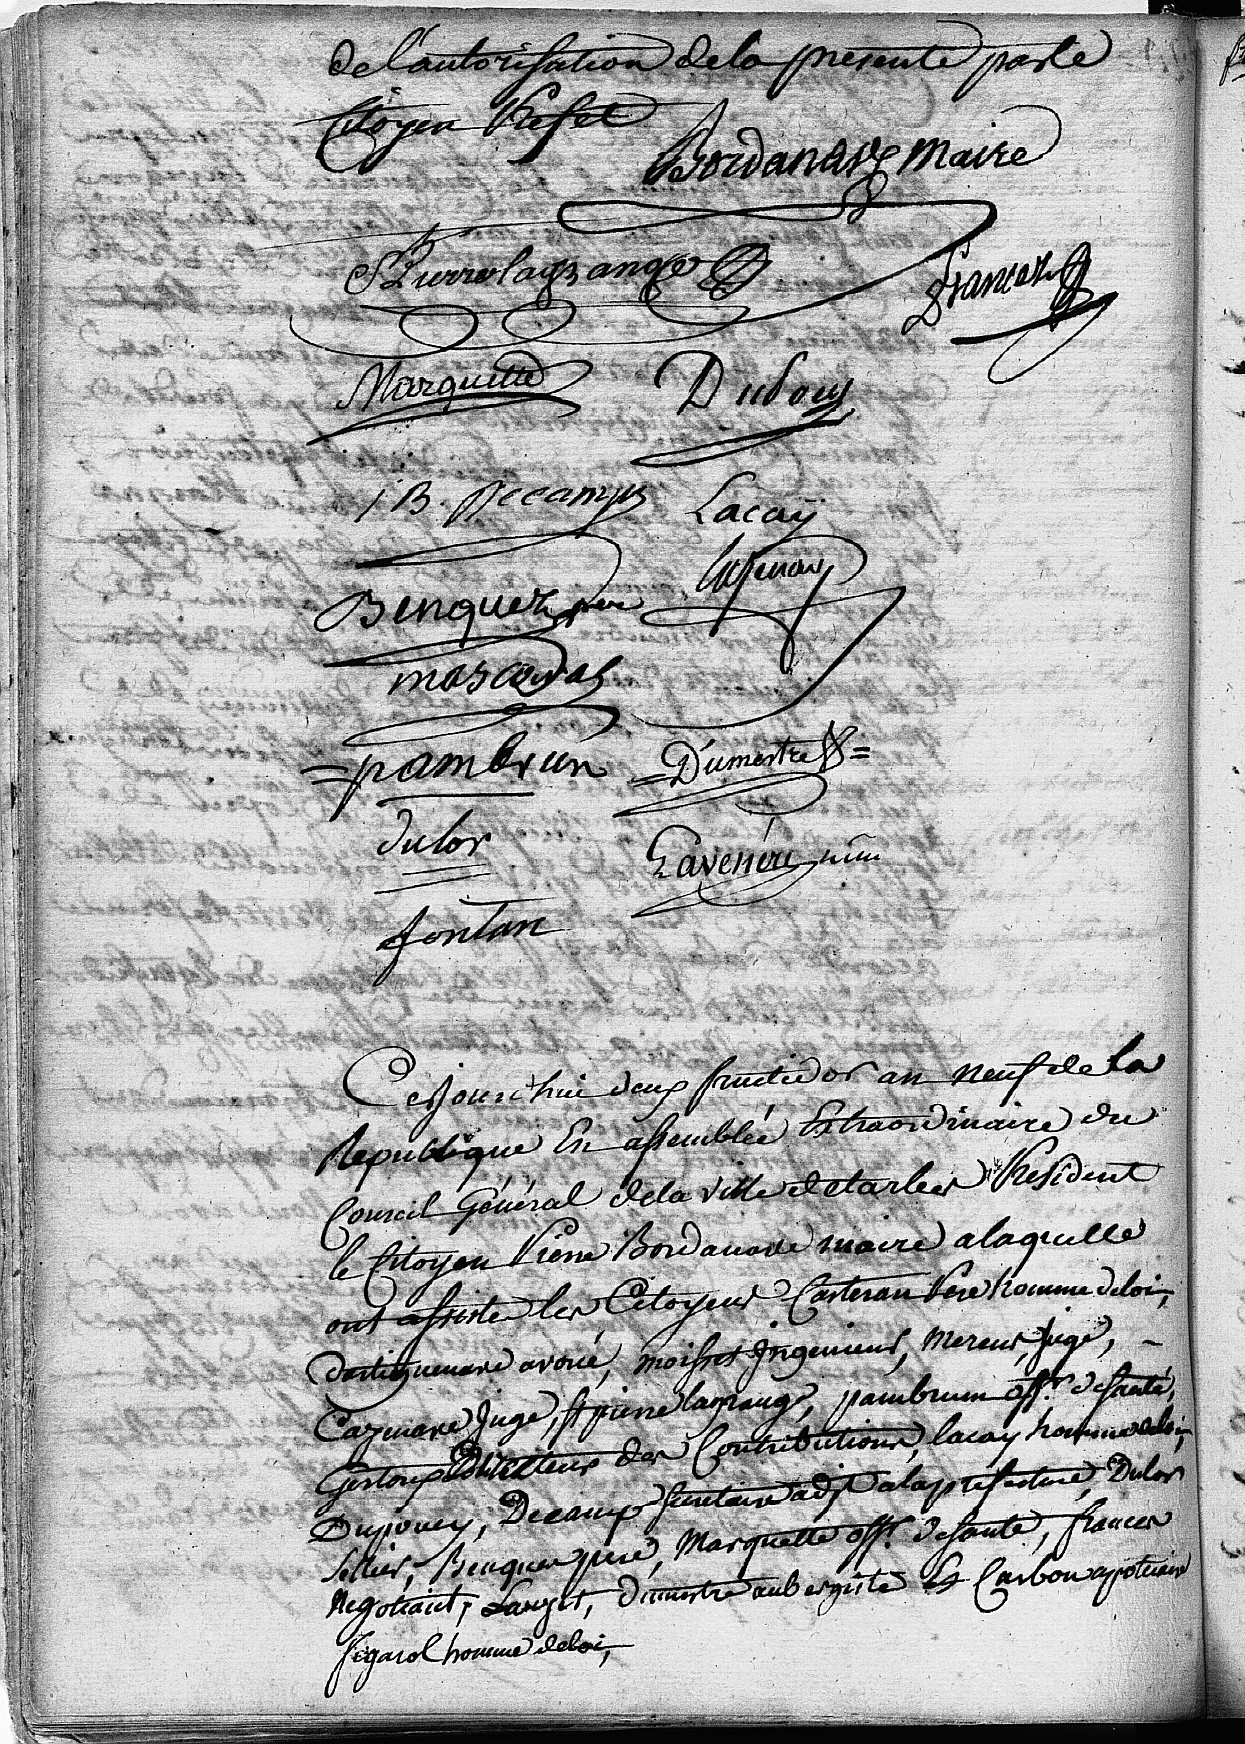 de l'autorisation de la presente par le
Citoyen Prefet
Bordanave maire
St Pierrelagrange
Francez
Marquette
Dubouy
JB. Decamps
Lacay
Benquez pere
mascaras
= pambrun
= Dumestre =
dulor
Lavenere
fontan
Cejourd'hui deux fructidor an neuf de la
Republique En assemblée Extraordinaire du
Conseil Général de la ville de tarbes President
le Citoyen Pierre Bordanave maire a laquelle
ont assisté les Citoyens Casteran Pere homme de loi,
dartiguenave avoué, moisset Ingenieur, Mereus, Juge,
Cazenave Juge, St pierre lagrange, pambrun off.r de santé,
Directeur des Contributions, lacay homme de loi,
Dupouey, Decamp secretaire adjt a la prefecture, Dulor
Sellier, Benquez pere, Marquette off.r de santé, francez
Negotiant, Dumestre aubergiste Et Carbon apoticaire
Figarol homme de loi,